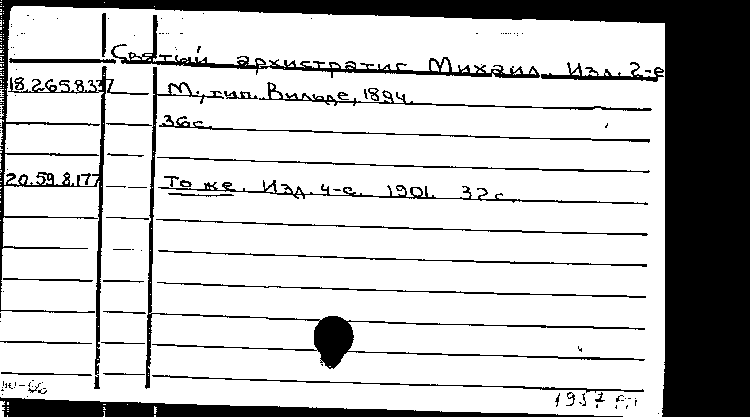 Святый архистратиг Михаил. Изд. 2-е
18.265.8.337 М., тип. Вильде, 1894.
36 с.
20.59.8.177 То же. Изд. 4-е. 1901. 32 с.
1957